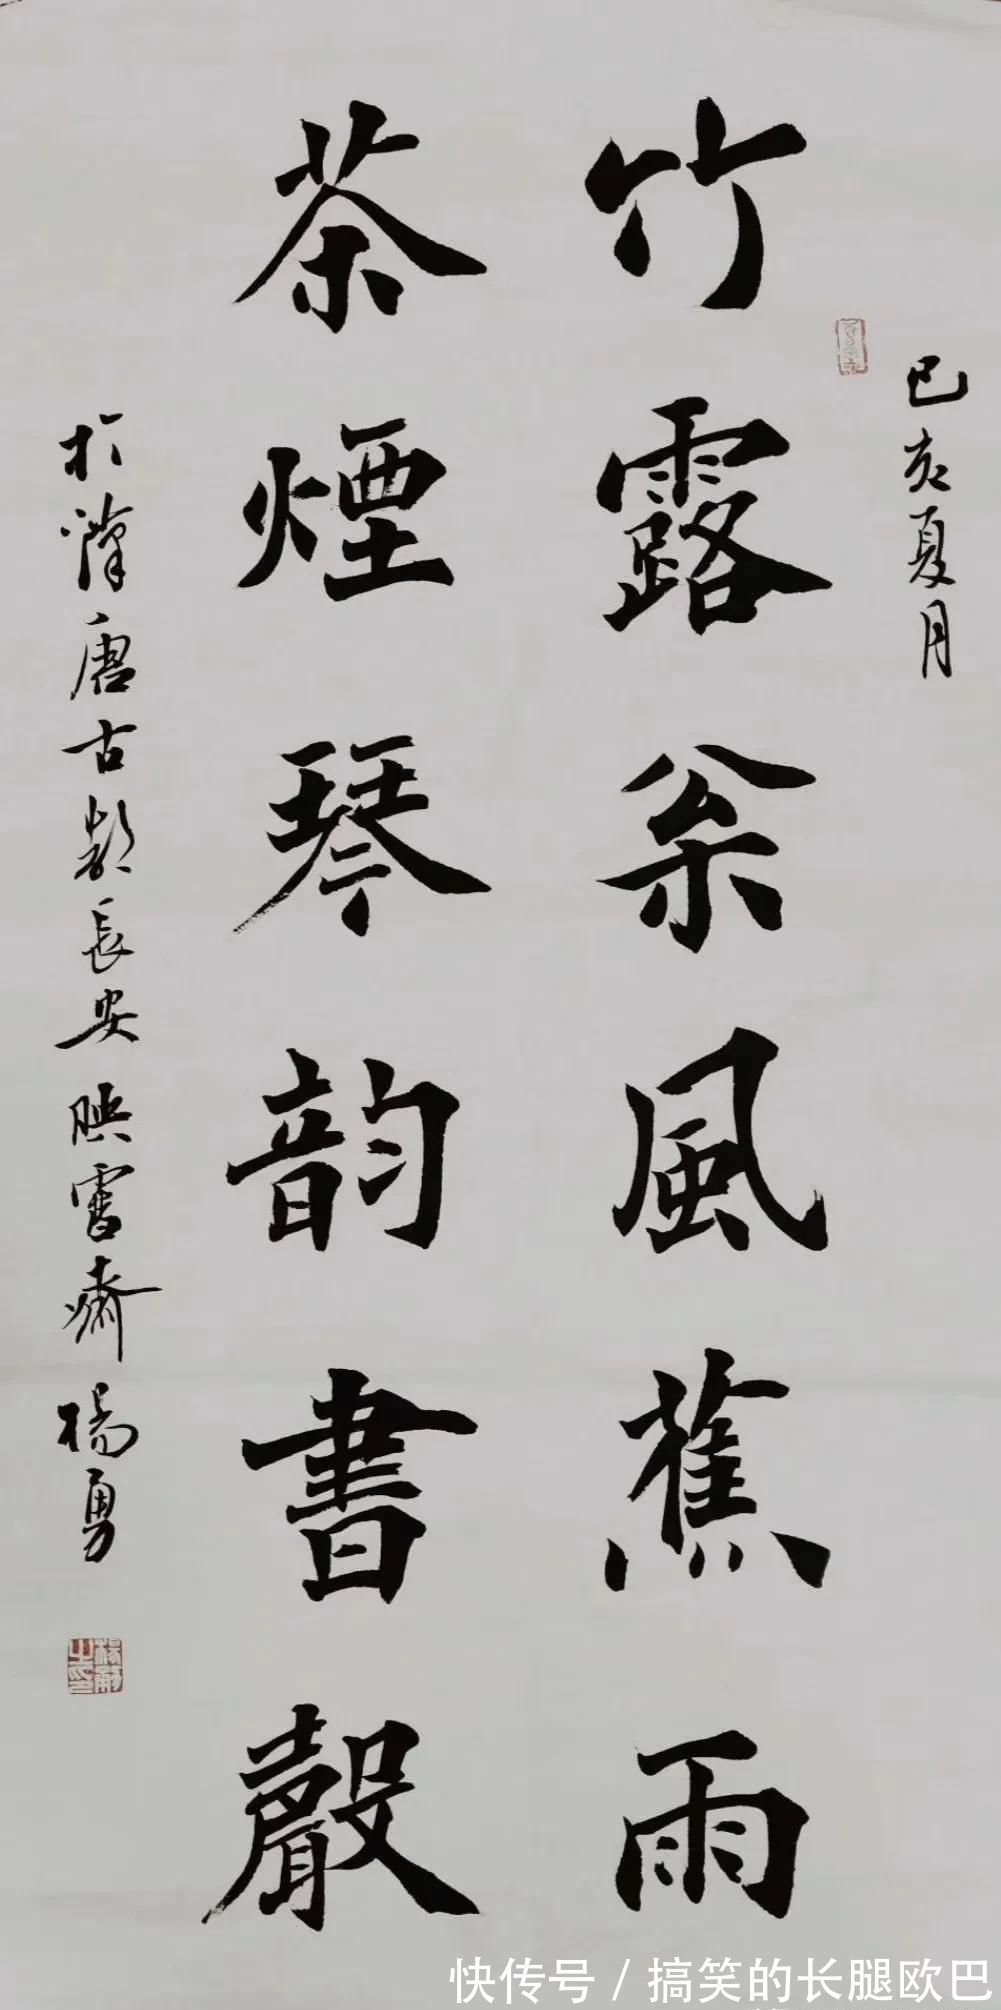 己亥夏月
竹露枀風蕉雨
茶煙琴韵書聲
於漢唐古都長安映雪齋楊勇
楊勇之印
快传号 / 搞笑的长腿欧巴